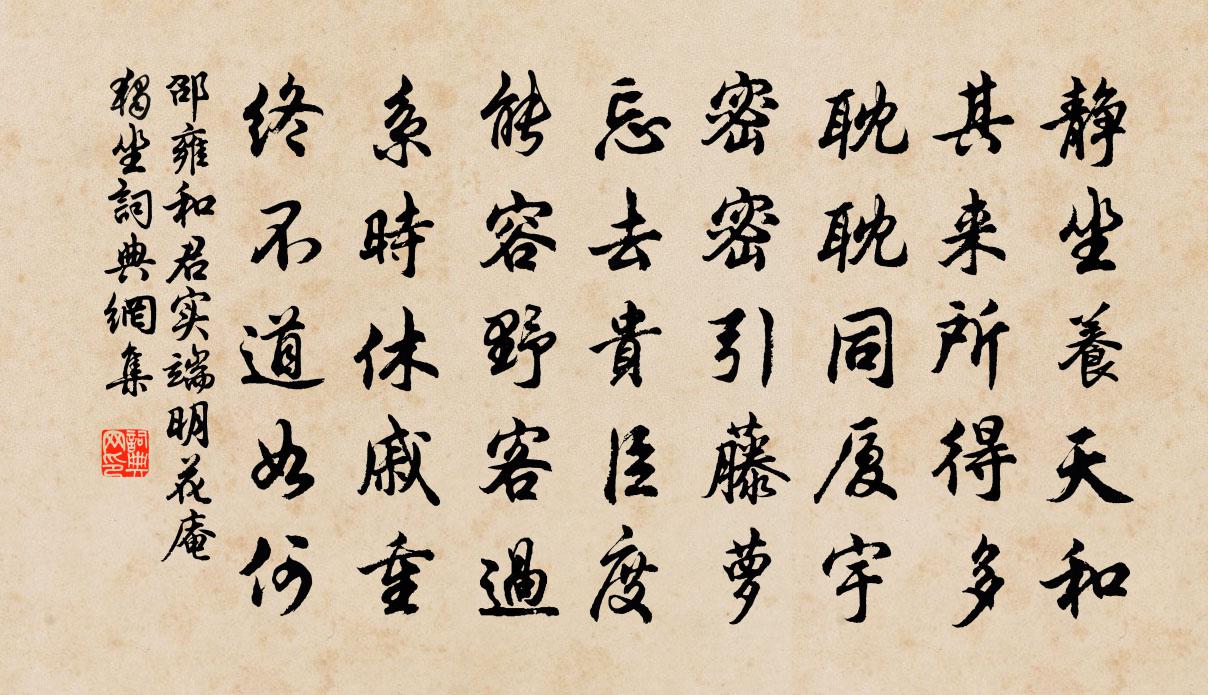 静坐養天和
其来所得多
耽耽同厦宇
密密引藤萝
忘去貴臣度
能容野客過
系時休戚重
終不道如何
邵雍和君实端明花庵
獨坐詞典網集
詞典网印